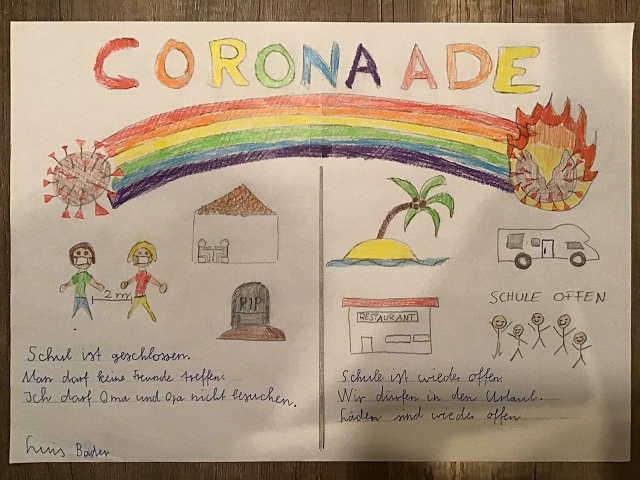 CORONA ADE
2 m
RIP
RESTAURANT
SCHULE OFFEN
Schul ist geschlossen.
Man darf keine Freunde treffen.
Ich darf Oma und Opa nicht besuchen.
Schule ist wieder offen.
Wir dürfen in den Urlaub.
Läden sind wieder offen
Luis Bader